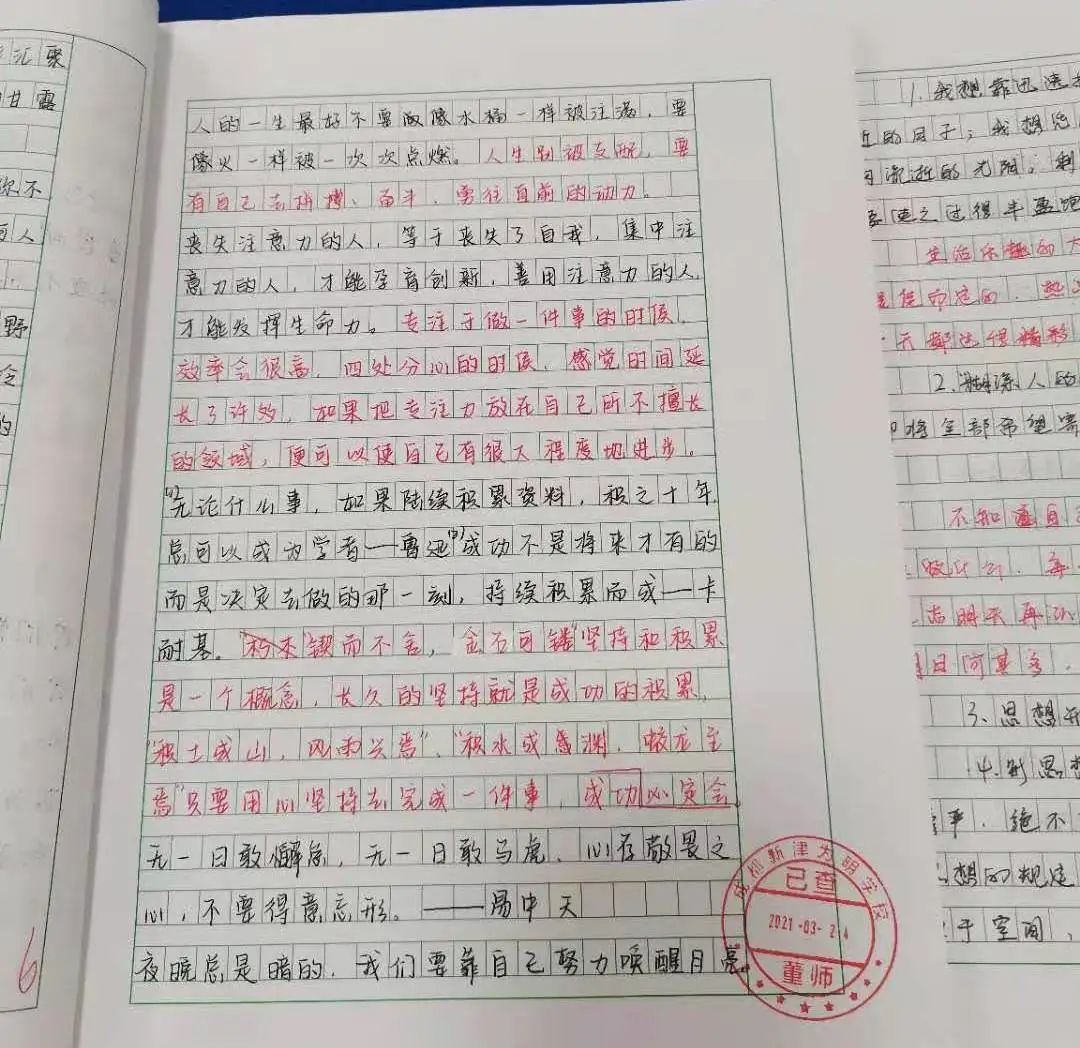 汇聚
甘露
你不
人
野
的
6
人的一生最好不要做像水桶一样被注满，要
像火一样被一次次点燃。人生别被支配，要
有自己去拼搏、奋斗，勇往直前的动力。
丧失注意力的人，等于丧失了自我，集中注
意力的人，才能孕育创新，善用注意力的人
才能发挥生命力。专注于做一件事的时候，
效率会很高，四处分心的时候，感觉时间延
长了许多，如果把专注力放在自己所不擅长
的领域，便可以使自己有很大程度地进步。
(1)无论什么事，如果陆续积累资料，积之十年，
总可以成为学者——鲁迅(2)成功不是将来才有的
而是决定去做的那一刻，持续积累而成——卡
耐基。"锲而不舍，金石可镂"坚持和积累
是一个概念，长久的坚持就是成功的积累，
"积土成山，风雨兴焉"、"积水成渊，蛟龙至
焉"只要用心坚持去完成一件事，成功必定会
无一日敢懈怠，无一日敢马虎，心存敬畏之
心，不要得意忘形。——易中天
夜晚总是暗的，我们要靠自己努力唤醒月亮。
成都新津为明学校
已查
2021-03-24
董师
1.我想靠迅速
的日子；我想凭
流逝的光阴；剩
使之过得丰盈饱
生活乐趣的大
是信命运的，热
天都过得精彩
2.糊涂人的
将全部希望寄
不知道自
做计划，每
明天再
日何其多，
3、思想开
4、别思想
事，绝不
想的规定
于空间，